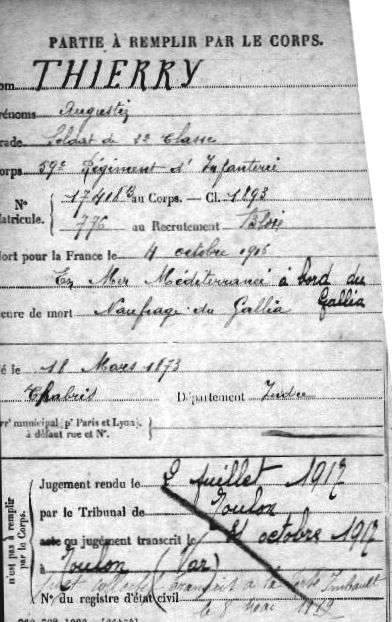 PARTIE À REMPLIR PAR LE CORPS.
om THIERRY
rénoms Augustin
rade Soldat de 2e Classe
orps 59e Régiment d'Infanterie
N° 17418 au Corps. — Cl. 1893
atricule. 776 au Recrutement Blois
ort pour la France le 4 octobre 1916
En Mer Méditerranée à bord du
Gallia
enre de mort Naufrage du Gallia
é le 18 Mars 1873
Chabris Département Indre
rr' municipal (p' Paris et Lyon),
à défaut rue et N°.
n'est pas à remplir
par le Corps.
Jugement rendu le 2 juillet 1917
par le Tribunal de Toulon
acte ou jugement transcrit le 21 octobre 1917
à Toulon (Var)
transcrit à la
N° du registre d'état civil
le 8 mai